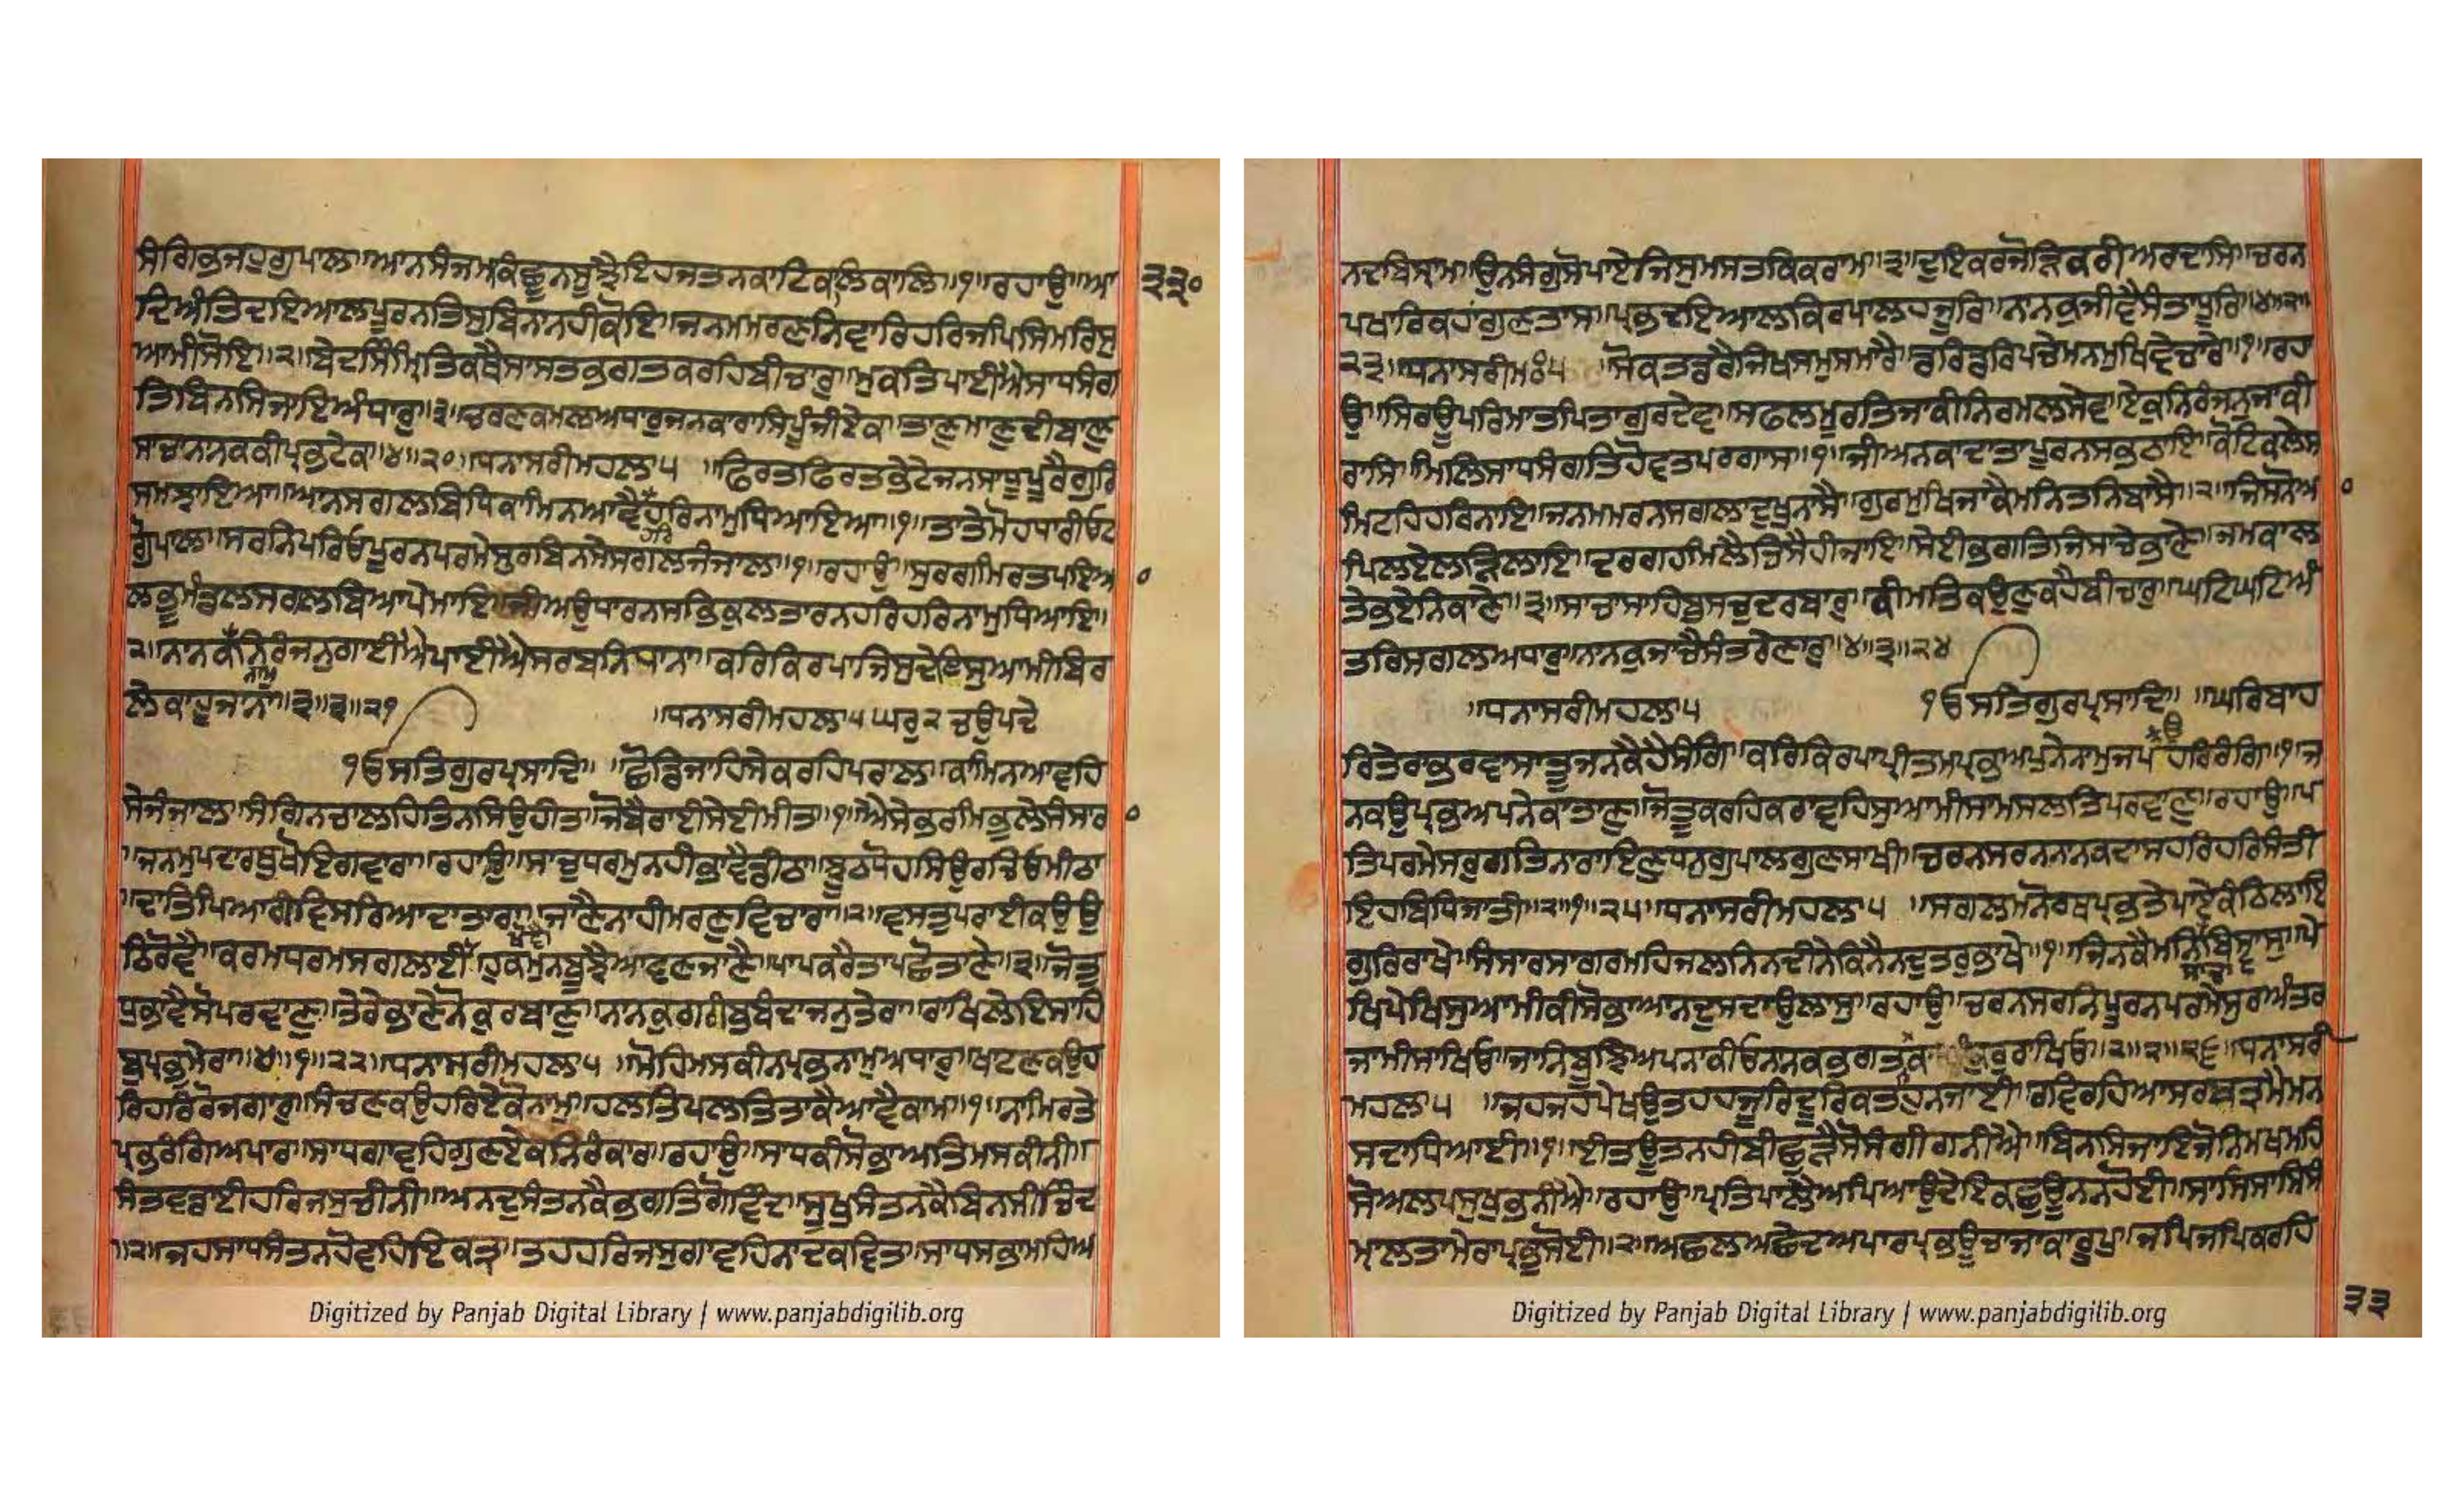 ਸੰਗਿਭਜਹੁਗੁਪਾਲਾ॥ਆਨਸੰਜਮਕਿਛੂਨਸੂਝੈਇਹਜਤਨਕਾਟਿਕਲਿਕਾਲਿ॥੧॥ਰਹਾਉ॥ਆ
੩੩੦
ਦਿਅੰਤਿਦਇਆਲਪੂਰਨਤਿਸੁਬਿਨਾਨਹੀਕੋਇ॥ਜਨਮਮਰਣਨਿਵਾਰਿਹਰਿਜਪਿਸਿਮਰਿਸੁ
ਆਮੀਸੋਇ॥੨॥ਬੇਦਸਿੰਮ੍ਰਿਤਿਕਥੈਸਾਸਤਭਗਤਕਰਹਿਬੀਚਾਰੁ॥ਮੁਕਤਿਪਾਈਐਸਾਧਸੰਗ
ਤਿਬਿਨਸਿਜਾਇਅੰਧਾਰੁ॥੩॥ਚਰਣਕਮਲਅਧਾਰੁਜਨਕਾਰਾਸਿਪੂੰਜੀਏਕ॥ਤਾਣੁਮਾਣੁਦੀਬਾਣੁ
ਸਾਚਾਨਾਨਕਕੀਪ੍ਰਭਟੇਕ॥੪॥੨੦॥ਧਨਾਸਰੀਮਹਲਾ੫ ॥ਫਿਰਤਫਿਰਤਭੇਟੇਜਨਸਾਧੂਪੂਰੈਗੁਰਿ
ਸਮਝਾਇਆ॥ਆਨਸਗਲਬਿਧਿਕਾਮਿਨਆਵੈਹਰਿਹਰਿਨਾਮੁਧਿਆਇਆ॥੧॥ਤਾਤੇਮੋਹਧਾਰੀਓਟ
ਗੋੁਪਾਲ॥ਸਰਨਿਪਰਿਓਪੂਰਨਪਰਮੇਸੁਰਬਿਨਸੇਸਗਲਜੰਜਾਲ॥੧॥ਰਹਾਉ॥ਸੁਰਗਮਿਰਤਪਇਆ
ਲਭੂਮੰਡਲਸਗਲਬਿਆਪੇਮਾਇ॥ਜੀਅਉਧਾਰਨਸਭਿਕੁਲਤਾਰਨਹਰਿਹਰਿਨਾਮੁਧਿਆਇ॥
੨॥ਨਾਨਕਨਾਮੁਨਿਰੰਜਨੁਗਾਈਐਪਾਈਐਸਰਬਨਿਧਾਨਾ॥ਕਰਿਕਿਰਪਾਜਿਸੁਦੇਇਸੁਆਮੀਬਿਰ
ਲੇਕਾਹੂਜਾਨਾ॥੩॥੩॥੨੧
॥ਧਨਾਸਰੀਮਹਲਾ੫ਘਰੁ੨ਚਉਪਦੇ
੧ੳਸਤਿਗੁਰਪ੍ਰਸਾਦਿ॥ ॥ਛੋਡਿਜਾਹਿਸੇਕਰਹਿਪਰਾਲ॥ਕਾਮਿਨਆਵਹਿ
ਸੇਜੰਜਾਲ॥ਸੰਗਿਨਚਾਲਹਿਤਿਨਸਿਉਹੀਤ॥ਜੋਬੈਰਾਈਸੇਈਮੀਤ॥੧॥ਐਸੇਭਰਮਿਭੁਲੇਸੰਸਾਰ
॥ਜਨਮੁਪਦਾਰਥੁਖੋਇਗਵਾਰਾ॥ਰਹਾਉ॥ਸਾਚੁਧਰਮੁਨਹੀਭਾਵੈਡੀਠਾ॥ਝੂਠਧੋਹਸਿਉਰਚਿਓਮੀਠਾ
॥ਦਾਤਿਪਿਆਰੀਵਿਸਰਿਆਦਾਤਾਰਾ॥ਜਾਣੈਨਾਹੀਮਰਣੁਵਿਚਾਰਾ॥੨॥ਵਸਤੁਪਰਾਈਕਉਉ
ਠਿਰੋਵੈ॥ਕਰਮਧਰਮਸਗਲਾਈਖੋਵੈ॥ਹੁਕਮੁਨਬੂਝੈਆਵਣਜਾਣੇ॥ਪਾਪਕਰੈਤਾਪਛੋਤਾਣੇ॥੩॥ਜੋਤੁ
ਧੁਭਾਵੈਸੋਪਰਵਾਣੁ॥ਤੇਰੇਭਾਣੇਨੋਕੁਰਬਾਣੁ॥ਨਾਨਕੁਗਰੀਬੁਬੰਦਾਜਨੁਤੇਰਾ॥ਰਾਖਿਲੇਇਸਾਹਿ
ਬੁਪ੍ਰਭੁਮੇਰਾ॥੪॥੧॥੨੨॥ਧਨਾਸਰੀਮਹਲਾ੫ ॥ਮੋਹਿਮਸਕੀਨਪ੍ਰਭਨਾਮੁਅਧਾਰੁ॥ਖਾਟਣਕਉਹ
ਰਿਹਰਿਰੋਜਗਾਰੁ॥ਸੰਚਣਕਉਹਰਿਏਕੋਨਾਮੁ॥ਹਲਤਿਪਲਤਿਤਾਕੈਆਵੈਕਾਮ॥੧॥ਨਾਮਿਰਤੇ
ਪ੍ਰਭਰੰਗਿਅਪਾਰ॥ਸਾਧਗਾਵਹਿਗੁਣਏਕਨਿਰੰਕਾਰ॥ਰਹਾਉ॥ਸਾਧਕੀਸੋਭਾਅਤਿਮਸਕੀਨੀ॥
ਸੰਤਵਡਾਈਹਰਿਜਸੁਚੀਨੀ॥ਅਨਦੁਸੰਤਨਕੈਭਗਤਿਗੋਵਿੰਦ॥ਸੂਖੁਸੰਤਨਕੈਬਿਨਸੀਚਿੰਦ
॥੨॥ਜਹਸਾਧਸੰਤਨਹੋਵਹਿਇਕਤ੍ਰ॥ਤਹਹਰਿਜਸੁਗਾਵਹਿਨਾਦਕਵਿਤ॥ਸਾਧਸਭਾਮਹਿਅ
Digitized by Panjab Digital Library | www.panjabdigilib.org
ਨਦਬਿਸ੍ਰਾਮ॥ਉਨਸੰਗੁਸੋਪਾਏਜਿਸੁਮਸਤਕਿਕਰਾਮ॥੩॥ਦੁਇਕਰਜੋੜਿਕਰੀਅਰਦਾਸਿ॥ਚਰਨ
ਪਖਾਰਿਕਹਾਂਗੁਣਤਾਸ॥ਪ੍ਰਭਦਇਆਲਕਿਰਪਾਲਹਜੂਰਿ॥ਨਾਨਕੁਜੀਵੈਸੰਤਾਧੂਰਿ॥੪॥੨॥
੨੩॥ਧਨਾਸਰੀਮਃ੫ ॥ਸੋਕਤਡਰੈਜਿਖਸਮੁਸਮਾਰੈ॥ਡਰਿਡਰਿਪਚੇਮਨਮੁਖਿਵੇਚਾਰੇ॥੧॥ਰਹਾ
ਉ॥ਸਿਰਊਪਰਿਮਾਤਪਿਤਾਗੁਰਦੇਵ॥ਸਫਲਮੂਰਤਿਜਾਕੀਨਿਰਮਲਸੇਵ॥ਏਕੁਨਿਰੰਜਨੁਜਾਕੀ
ਰਾਸਿ॥ਮਿਲਿਸਾਧਸੰਗਤਿਹੋਵਤਪਰਗਾਸ॥੧॥ਜੀਅਨਕਾਦਾਤਾਪੂਰਨਸਭਠਾਇ॥ਕੋਟਿਕਲੇਸ
ਮਿਟਹਿਹਰਿਨਾਇ॥ਜਨਮਮਰਨਸਗਲਾਦੁਖੁਨਾਸੈ॥ਗੁਰਮੁਖਿਜਾਕੈਮਨਿਤਨਿਬਾਸੈ॥੨॥ਜਿਸਨੋਆ
ਪਿਲਏਲੜਿਲਾਇ॥ਦਰਗਹਮਿਲੈਤਿਸੈਹੀਜਾਇ॥ਸੇਈਭਗਤਿਜਿਸਾਚੇਭਾਣੇ॥ਜਮਕਾਲ
ਤੇਭਏਨਿਕਾਣੇ॥੩॥ਸਾਚਾਸਾਹਿਬੁਸਚੁਦਰਬਾਰੁ॥ਕੀਮਤਿਕਉਣੁਕਹੈਬੀਚਾਰੁ॥ਘਟਿਘਟਿਅੰ
ਤਰਿਸਗਲਅਧਾਰੁ॥ਨਾਨਕੁਜਾਚੈਸੰਤਰੇਣਾਰੁ॥੪॥੩॥੨੪
॥ਧਨਾਸਰੀਮਹਲਾ੫ ੧ੳਸਤਿਗੁਰਪ੍ਰਸਾਦਿ॥ ॥ਘਰਿਬਾਹ
ਰਿਤੇਰਾਭਰਵਾਸਾਤੂਜਨਕੈਹੈਸੰਗਿ॥ਕਰਿਕਿਰਪਾਪ੍ਰੀਤਮਪ੍ਰਭਅਪੁਨੇਨਾਮੁਜਪਉਹਰਿਰੰਗਿ॥੧॥ਜ
ਨਕਉਪ੍ਰਭਅਪਨੇਕਾਤਾਣੁ॥ਜੋਤੂਕਰਹਿਕਰਾਵਹਿਸੁਆਮੀਸਾਮਸਲਤਿਪਰਵਾਣੁ॥ਰਹਾਉ॥ਪ
ਤਿਪਰਮੇਸਰੁਗਤਿਨਾਰਾਇਣੁਧਨੁਗੁਪਾਲਗੁਣਸਾਖੀ॥ਚਰਨਸਰਨਨਾਨਕਦਾਸਹਰਿਹਰਿਸੰਤੀ
ਇਹਬਿਧਿਜਾਤੀ॥੨॥੧॥੨੫॥ਧਨਾਸਰੀਮਹਲਾ੫ ॥ਸਗਲਮਨੋਰਥਪ੍ਰਭਤੇਪਾਏਕੰਠਿਲਾਇ
ਗੁਰਿਰਾਖੇ॥ਸੰਸਾਰਸਾਗਰਮਹਿਜਲਨਿਨਦੀਨੇਕਿਨੈਨਦੁਤਰੁਭਾਖੇ॥੧॥ਜਿਨਕੈਮਨਿਸਾਚਾਬਿਸ੍ਵਾਸੁ॥ਪੇ
ਖਿਪੇਖਿਸੁਆਮੀਕੀਸੋਭਾਆਨਦੁਸਦਾਉਲਾਸੁ॥ਰਹਾਉ॥ਚਰਨਸਰਨਿਪੂਰਨਪਰਮੇਸੁਰਅੰਤਰ
ਜਾਮੀਸਾਖਿਓ॥ਜਾਨਿਬੂਝਿਅਪਨਾਕੀਓਨਾਨਕਭਗਤਕਾਅੰਕੁਰੁਰਾਖਿਓ॥੨॥੨॥੨੬॥ਧਨਾਸਰੀ
ਮਹਲਾ੫ ॥ਜਹਜਹਪੇਖਉਤਹਹਜੂਰਿਦੂਰਿਕਤਹੁਨਜਾਈ॥ਰਵਿਰਹਿਆਸਰਬਤ੍ਰਮੈਮਨ
ਸਦਾਧਿਆਈ॥੧॥ਈਤਊਤਨਹੀਬੀਛੁੜੈਸੋਸੰਗੀਗਨੀਐ॥ਬਿਨਸਿਜਾਇਜੋਨਿਮਖਮਹਿ
ਸੋਅਲਪਸੁਖੁਭਨੀਐ॥ਰਹਾਉ॥ਪ੍ਰਤਿਪਾਲੈਅਪਿਆਉਦੇਇਕਛੁਊਨਨਹੋਈ॥ਸਾਸਿਸਾਸਿਸੰ
ਮਾਲਤਾਮੇਰਾਪ੍ਰਭੁਸੋਈ॥੨॥ਅਛਲਅਛੇਦਅਪਾਰਪ੍ਰਭਊਚਾਜਾਕਾਰੂਪੁ॥ਜਪਿਜਪਿਕਰਹਿ
Digitized by Panjab Digital Library | www.panjabdigilib.org
੩੩